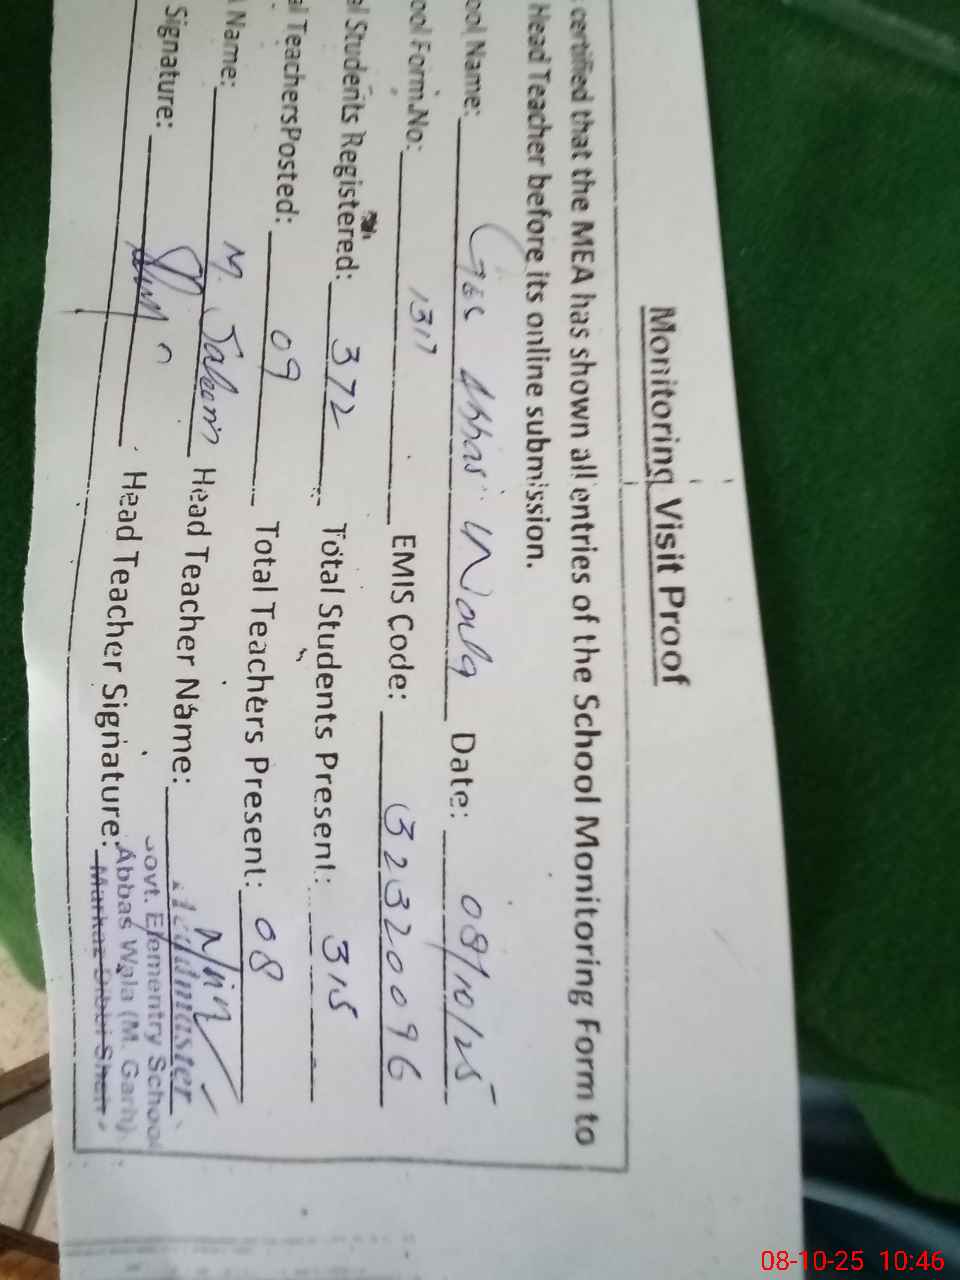 Monitoring Visit Proof
certified that the MEA has shown all entries of the School Monitoring Form to
Head Teacher before its online submission.
ool Name: Ges Abbas Wala Date: 08/10/25
ool Form.No: 1317 EMIS Code: 32320096
al Students Registered: 372 Total Students Present: 315
al TeachersPosted: 09 Total Teachers Present: 08
Name: M. Saleem Head Teacher Name:
Signature: Head Teacher Signature:
Headmaster
Govt. Elementry School
Abbas Wala (M. Garh).
Markaz
08-10-25 10:46